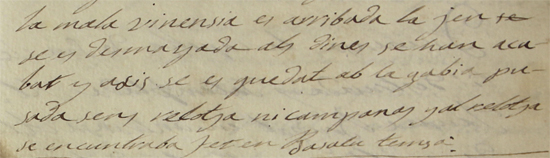 la mala vinensia es arribada la jen se
se es desmayada als dines se han aca-
bat y axis se es quedat ab la gabia pu-
sada sens relotja ni campanas y al relotja
se encuntraba fet en Basalu temsa.